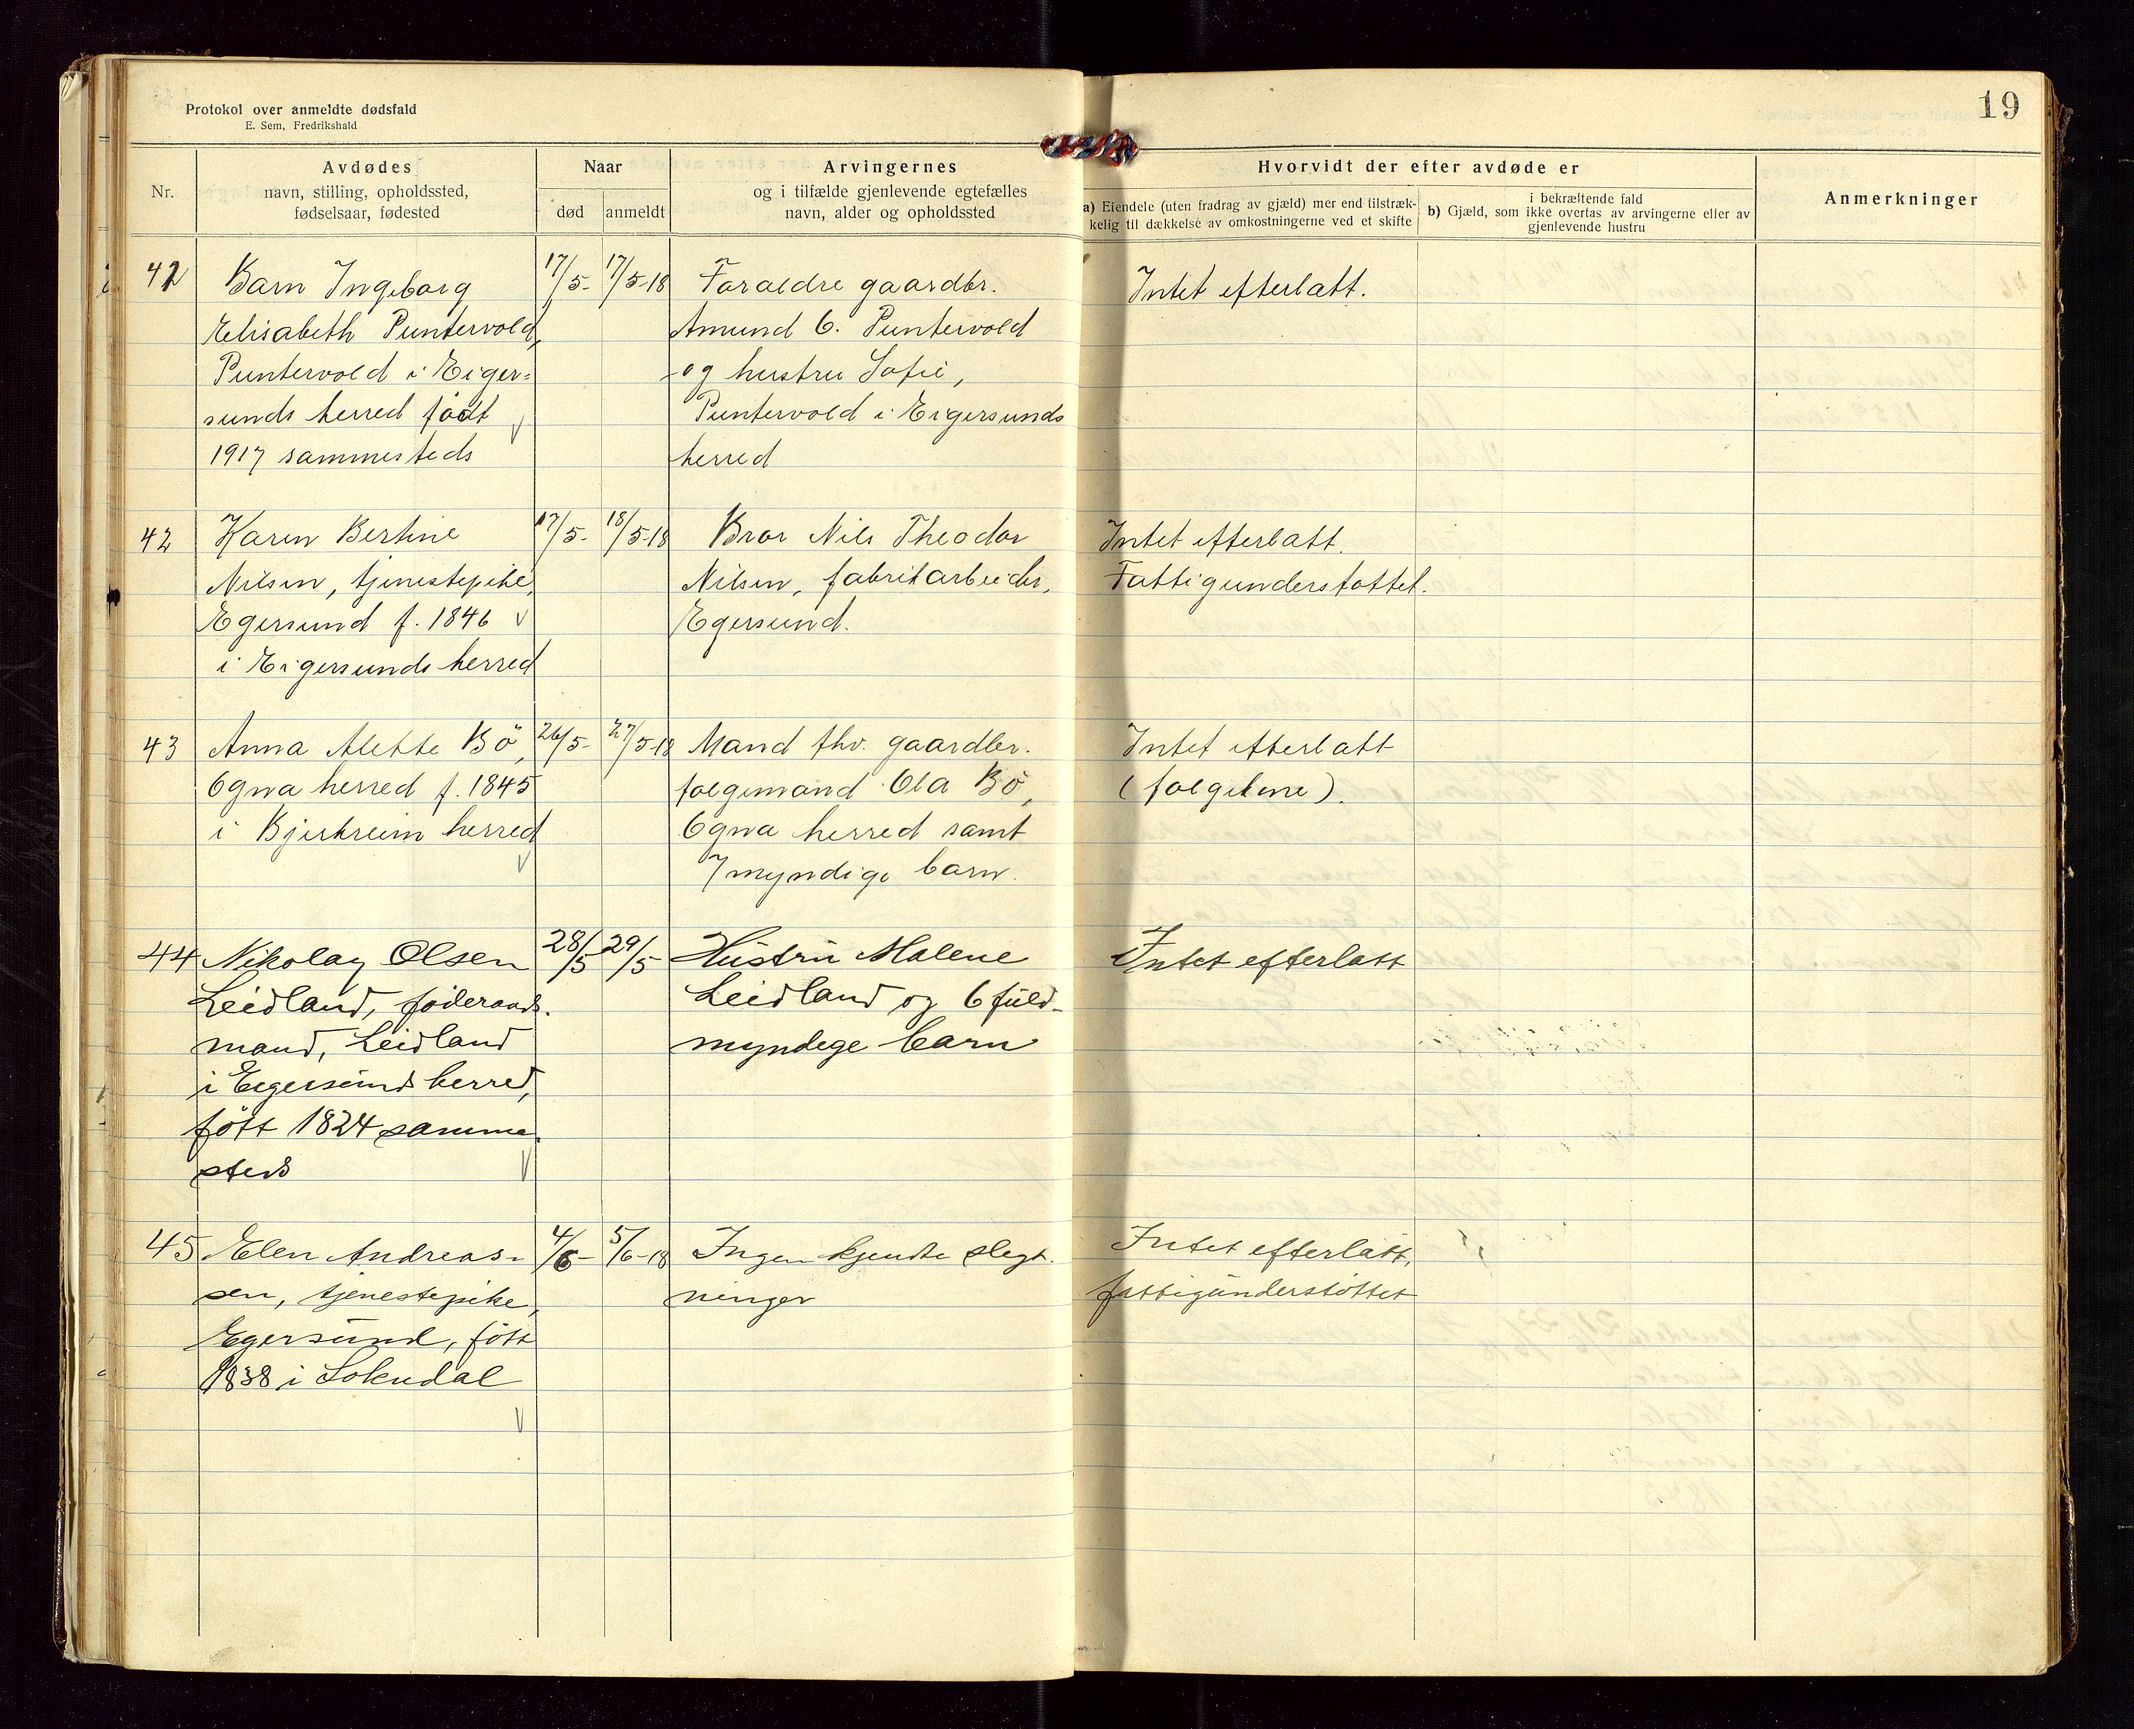 Protokol over anmeldte dødsfald
E. Sem, Fredrikshald
19
Nr.
Avdødes
navn, stilling, opholdssted,
fødselsaar, fødested
Naar
død
anmeldt
Arvingernes
og i tilfælde gjenlevende egtefælles
navn, alder og opholdssted
Hvorvidt der efter avdøde er
a) Eiendele (uten fradrag av gjæld) mer end tilstræk-
kelig til dækkelse av omkostningerne ved et skifte
b) Gjæld, som
i bekræftende fald
ikke overtas av arvingerne eller av
gjenlevende hustru
Anmerkninger
41
Barn Ingeborg
Elisabeth Puntervold,
Puntervold i Eiger=
sunds herred født
1917 sammesteds
17/5-
17/5-18
Foraldre gaardbr.
Amund O. Puntervold
og hustru Sofie,
Puntervold i Eigersunds
herred
Intet efterlatt.
42
Karen Bertine
Nilsen, tjenestepike,
Egersund f. 1846
i Eigersunds herred
17/5-
18/5-18
Bror Nils Theodor
Nilsen, fabrikarbeider,
Egersund.
Intet efterlatt.
Fattigunderstøttet.
43
Anna Alette Bö,
Ogna herred f. 1845
i Bjerkreim herred
26/5-
27/5-18
Mand fhv. gaardbr.
folgemand Ola Bö,
Ogna herred samt
7 myndige barn.
Intet efterlatt
(folgekone).
44
Nikolay Olsen
Leidland, föderaads-
mand, Leidland
i Eigersunds herred,
fött 1824 samme-
steds
28/5
29/5
Hustru Malene
Leidland og 6 fuld-
myndige barn
Intet efterlatt
45
Elen Andreas-
sen, tjenestepike,
Egersund, fött
1838 i Sokndal
4/6-
5/6-18
Ingen kjendte slegt-
ninger
Intet efterlatt,
fattigunderstöttet